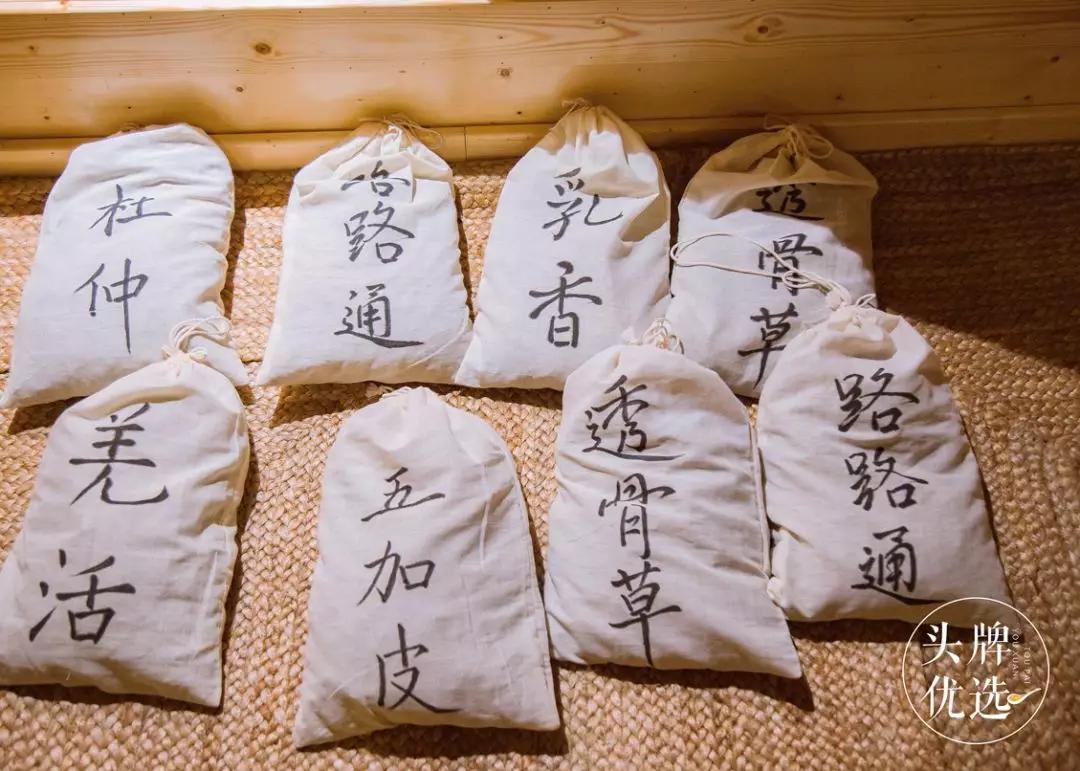 杜仲
路路通
乳香
透骨草
羌活
五加皮
透骨草
路路通
头牌
优选
YOUXUAN
TOU PAI